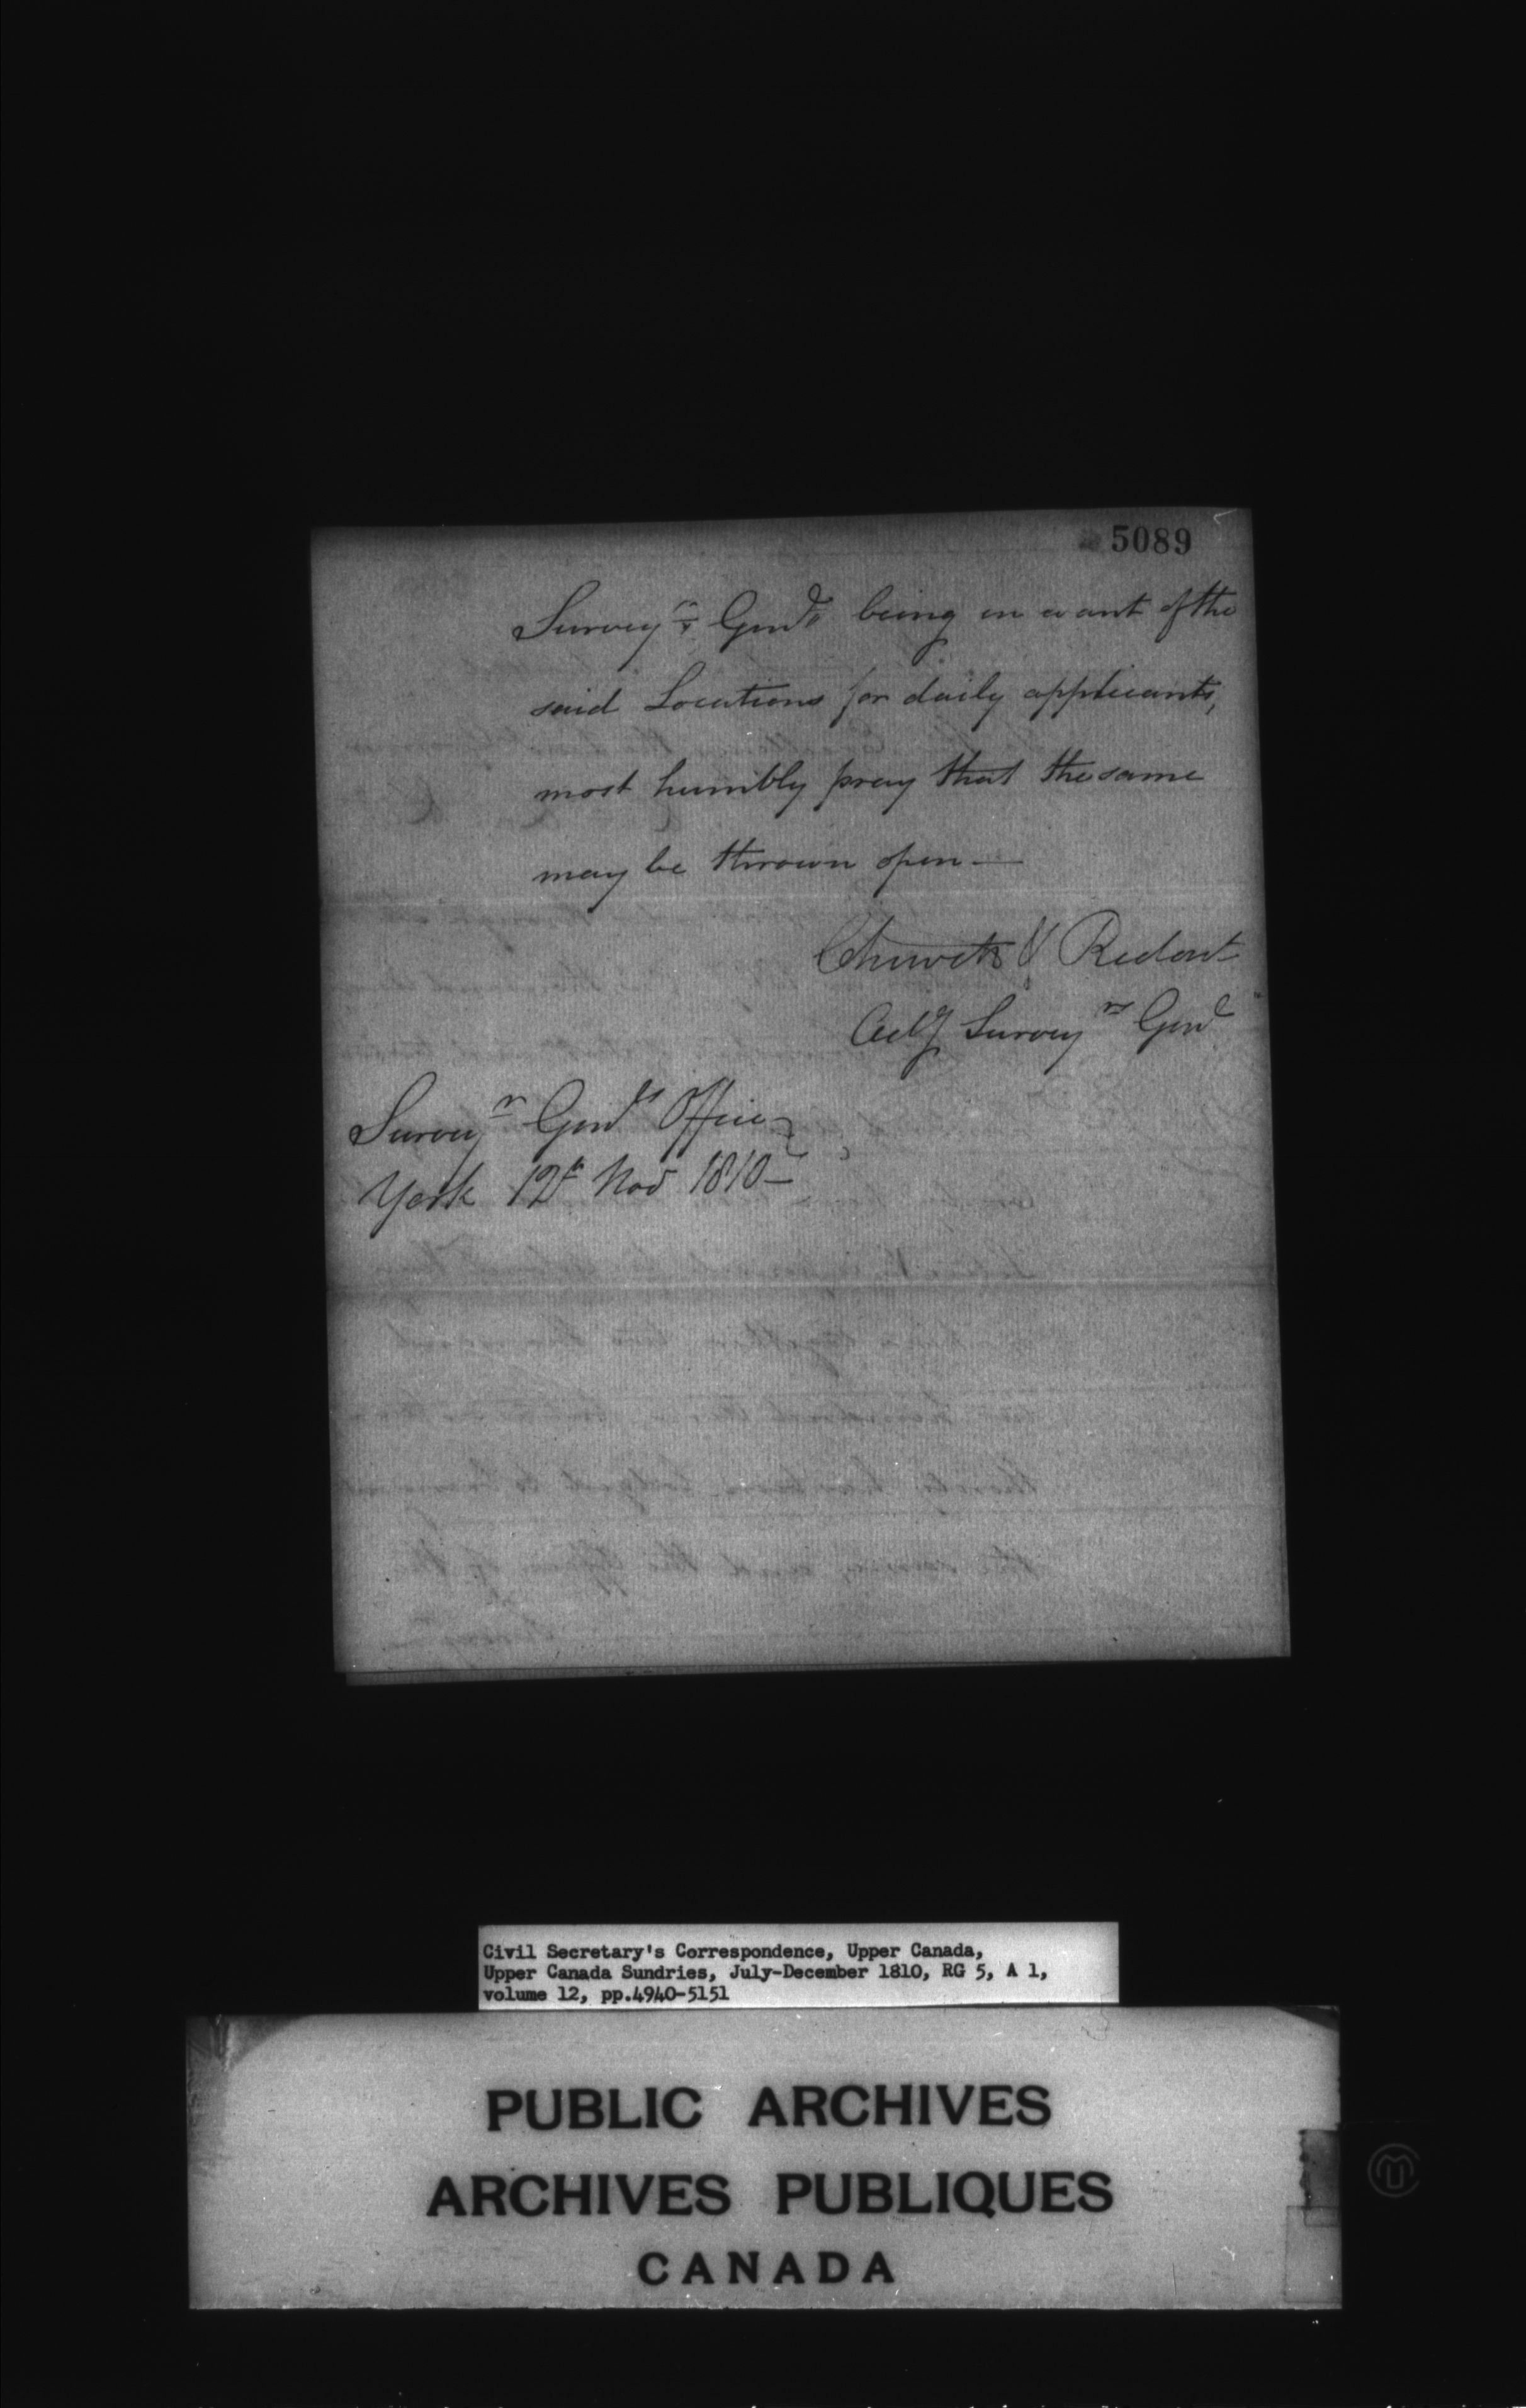 5089
Survey.r Gen.ls being in want of the
said Locations for daily applicants,
most humbly pray that the same
may be thrown open —
Chewett & Ridout
Act.g Survey.rs Gen.l
Survey.r Gen.ls Office
York 12th Nov 1810 —
Civil Secretary's Correspondence, Upper Canada,
Upper Canada Sundries, July-December 1810, RG 5, A 1,
volume 12, pp.4940-5151
PUBLIC ARCHIVES
ARCHIVES PUBLIQUES
CANADA